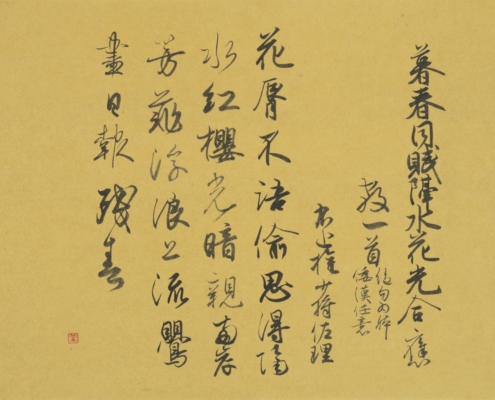 暮春同賦隔水花光合應
教一首 絶句為体
倭漢任意
右近權少将佐理
花脣不語偸思得隔
水紅櫻光暗親兩岸
芳菲浮浪上流鶯
盡日報殘春